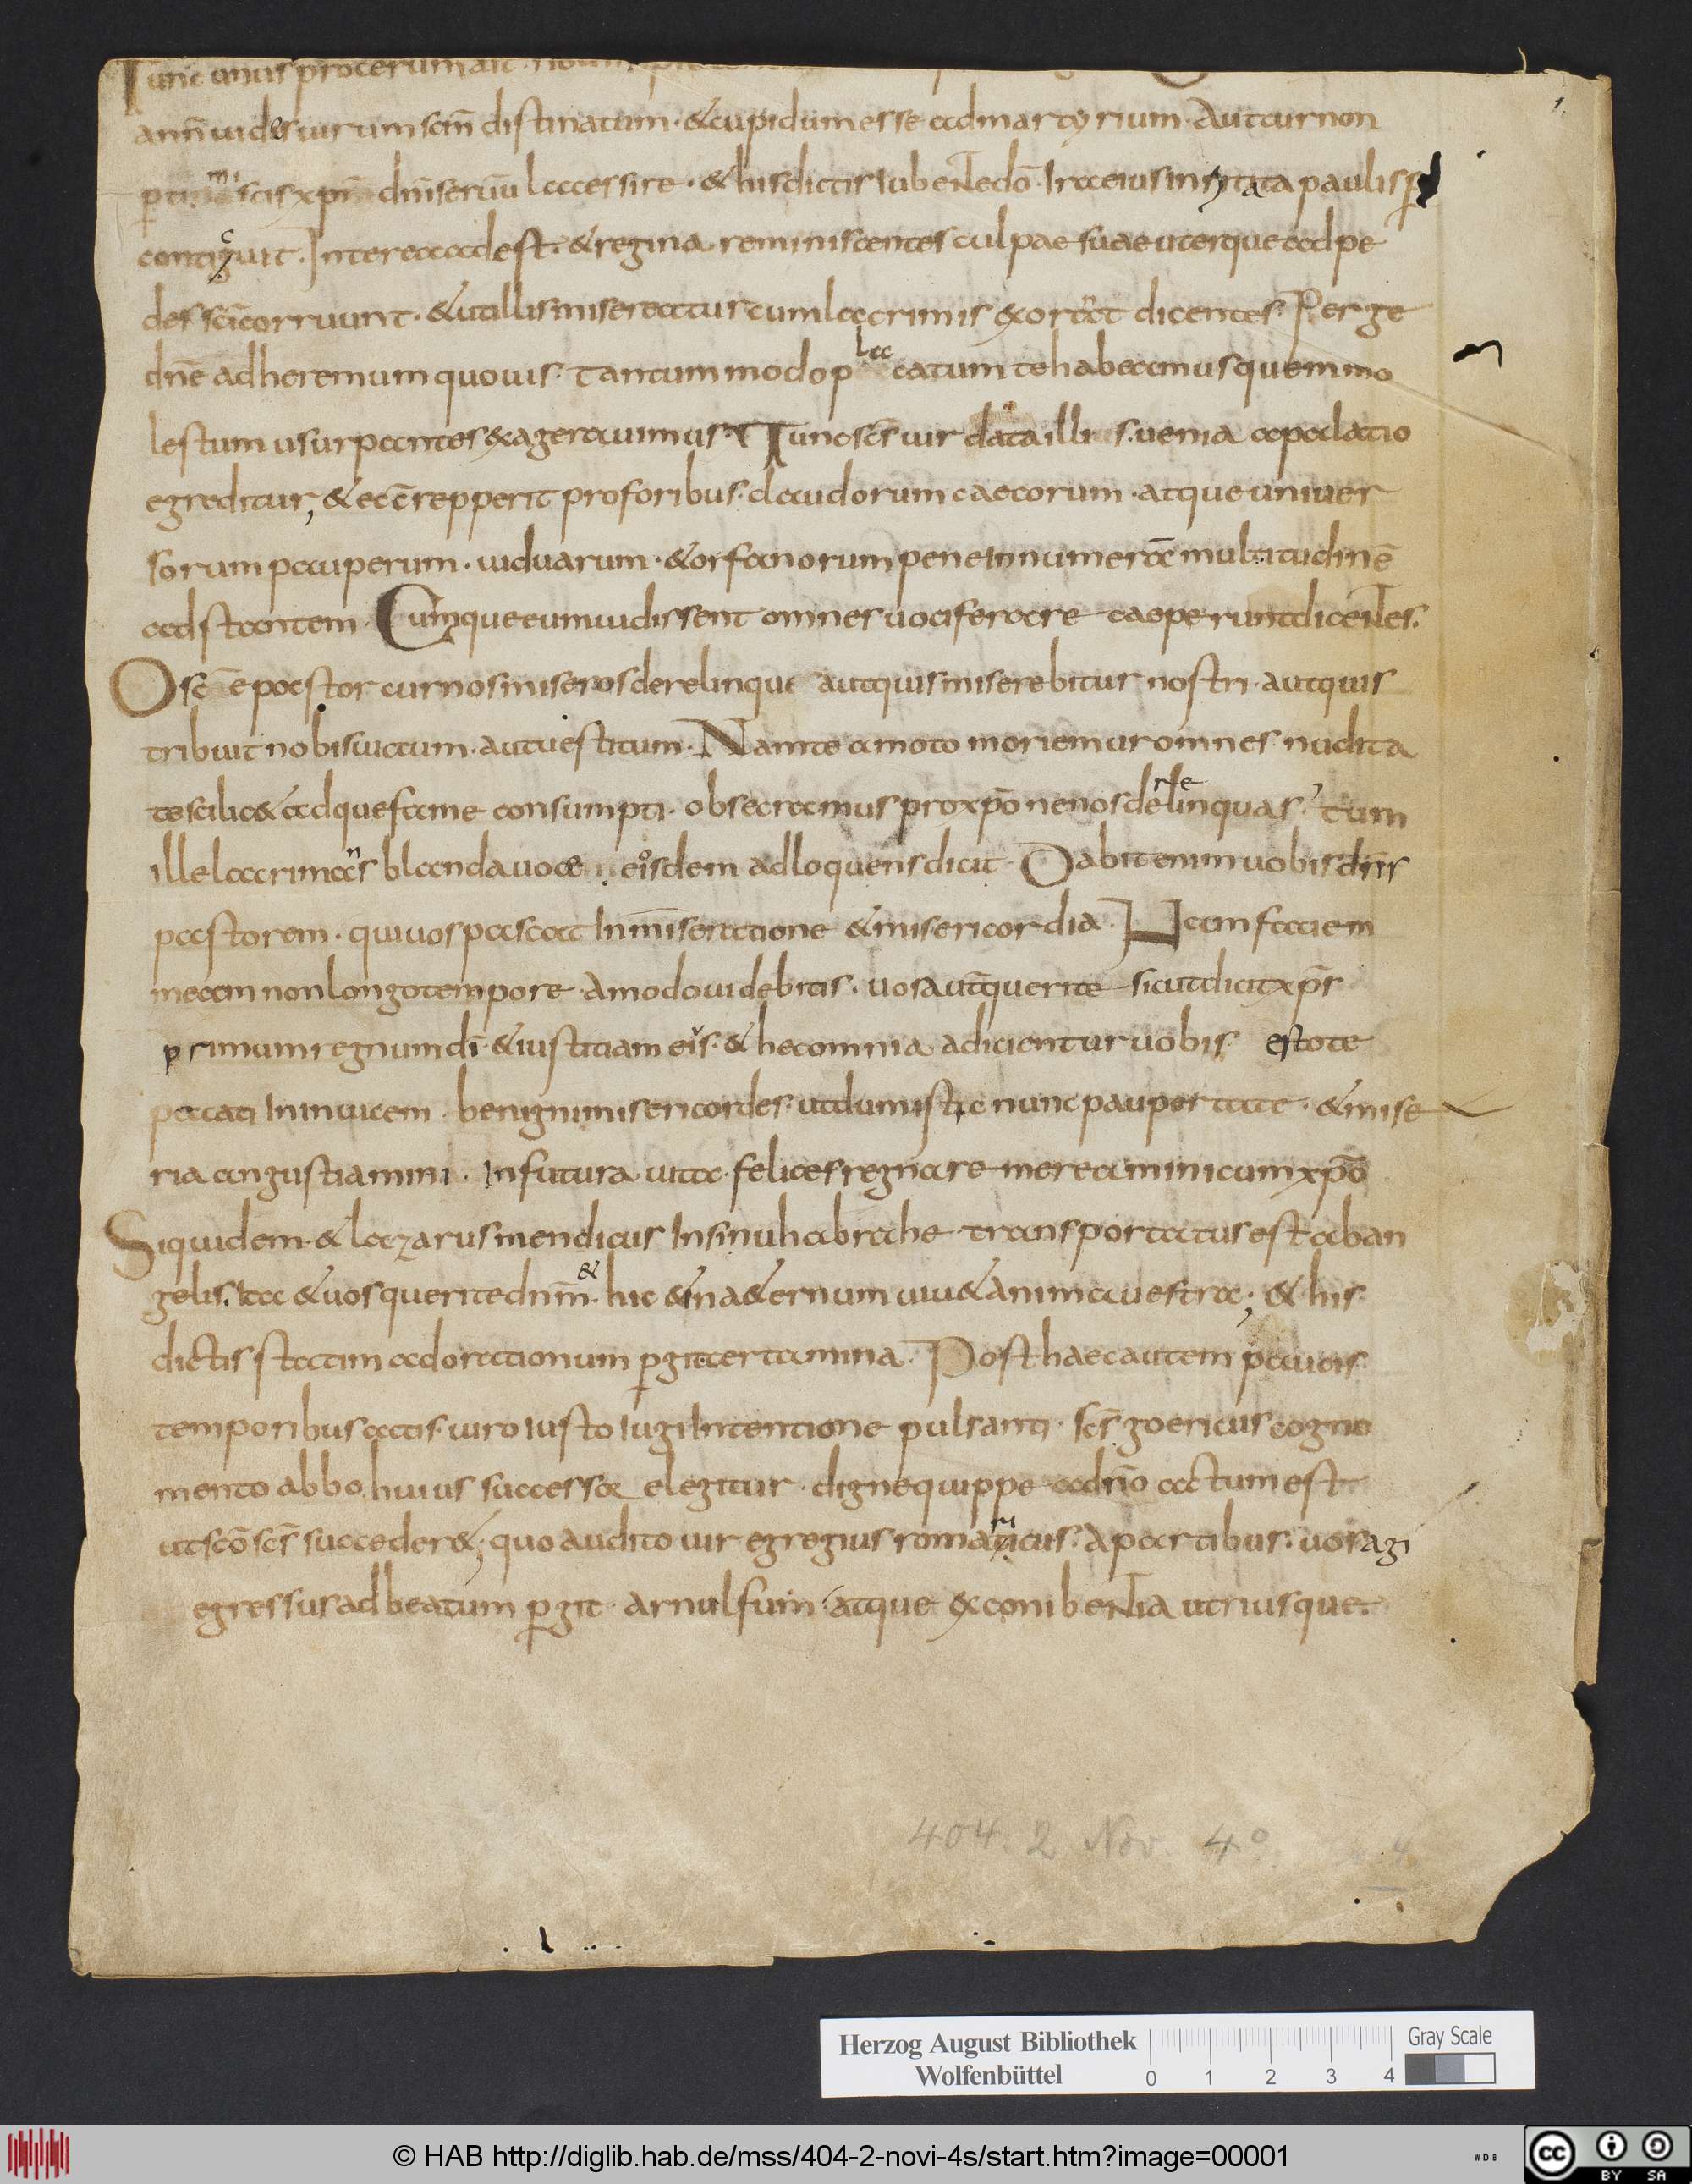 Tunc unus procerum ait
ann uides uirum scm̄ distinatum · & cupidum esse ad martyrium · Aut cur non
scis xp̄i dn̄i seruū lacessire · & his dictis iubente dō · Ira eius in paulisp̄
contiguit · Interea adest · & regina reminiscentes culpae suae uterque ad pe
des sc̄i corruunt · & ut illis misereatur cum lacrimis exorant dicentes · Perge
dn̄e ad heremum quouis · Tantummodo placatum te habeamus quem mo
lestum usurpantes exagerauimus · Tunc sc̄s uir data illis uenia ac oclatio
egreditur, & eccē repperit pro foribus · claudorum caecorum · atque uniuer
sorum pauperum · uiduarum · & orfanorum pene innumerā multitudinē
adstantem · Cumque eum uidissent omnes uociferare caoperunt dicentes ·
O sc̄e pastor cur nos miseros derelinque aut quis miserebitur nostri · aut quis
tribuit nobis uictum · aut uestitum · Nam te amoto moriemur omnes nudita
te scilic& adque fame consumpti · obsecramus pro xp̄o ne nos derelinquas · tum
ille lacrimans blanda uoce eisdem adloquens dicit · Dabit enim uobis dn̄s
pastorem · qui uos pascat In miseratione & misericordia · Nam faciem
meam non longo tempore amodo uidebitis · uos autē querite sicut dicit xp̄s
primum regnum dī · & iustitiam eius · & hec omnia adicientur uobis estote
pacati In inuicem · benigni misericordes · ut dum istic nunc paupertate · & mise
ria angustiamini · In futura uita · felices regnare mereamini cum xp̄o
Siquidem · & lazarus mendicus In sinu habrahe transportatus est ab an
gelis · Ita & uos querite dn̄m · & hic & in a&ernum uiu& anima uestra; & his
dictis statim ad orationum p̄git certamina · Post haec autem paucis
temporibus actis · uiro iusto iugi Intentione pulsanti · sc̄s goericus cogno
mento abbo huius successor elegitur · digne quippe a dn̄o actum est
ut scō sc̄s succeder&; quo audito uir egregius romaricus · A partibus · uosagi
egressus ad beatum p̄git arnulfum · atque ex conibentia utriusque ·
404. 2 Nov. 4°
Herzog August Bibliothek
Wolfenbüttel
0 1 2 3 4
Gray Scale
© HAB http://diglib.hab.de/mss/404-2-novi-4s/start.htm?image=00001
WDB
cc BY SA